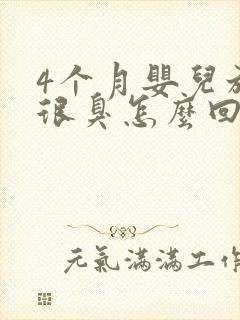 4个月嬰兒
很臭怎麼回
元氣滿滿工作